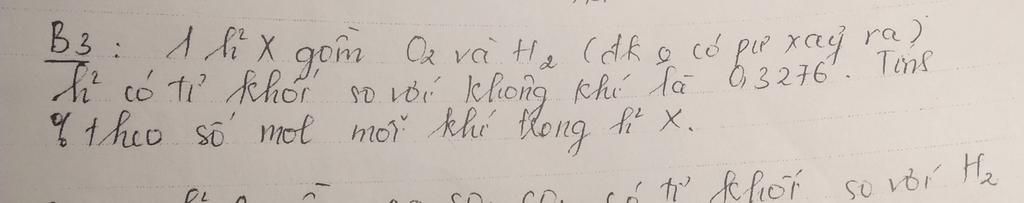 B3: 1 h² X gồm O₂ và H₂ (đk o có pư xảy ra)
h² có tỉ khối so với không khí là 0,3276. Tính
% theo số mol mỗi khí trong h² X.
có tỉ khối so với H₂